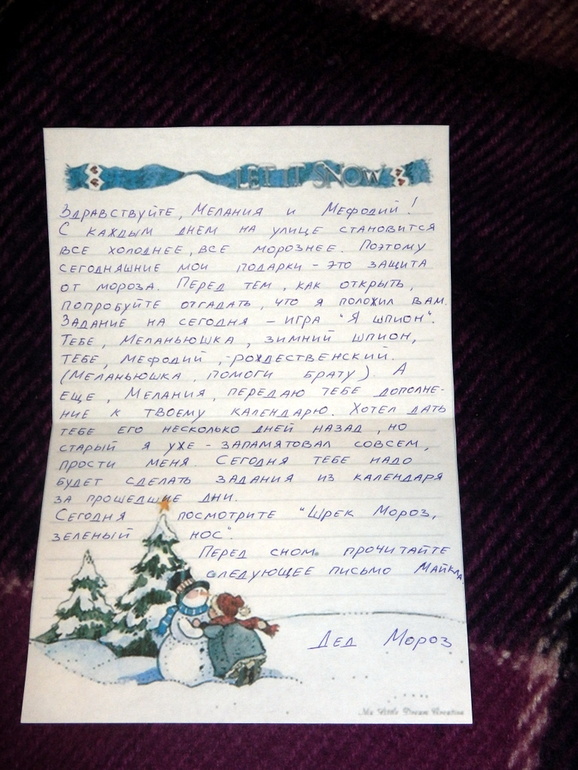 LET IT SNOW
Здравствуйте, Мелания и Мефодий!
С каждым днем на улице становится
все холоднее, все морознее. Поэтому
сегодняшние мои подарки - это защита
от мороза. Перед тем, как открыть,
попробуйте отгадать, что я положил вам.
Задание на сегодня - игра "Я шпион".
Тебе, Меланьюшка, зимний шпион,
тебе, Мефодий, - рождественский.
(Меланьюшка, помоги брату) А
еще, Мелания, передаю тебе дополне-
ние к твоему календарю. Хотел дать
тебе его несколько дней назад, но
старый я уже - запамятовал совсем,
прости меня Сегодня тебе надо
будет сделать задания из календаря
за прошедшие дни.
Сегодня посмотрите "Шрек Мороз,
зеленый нос".
Перед сном прочитайте
следующее письмо Майкла
Дед Мороз
My Little Dream Creation